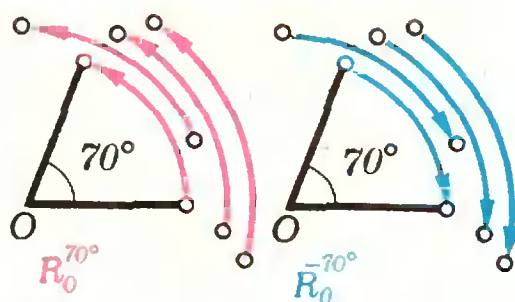 70°
O
R₀⁷⁰°
70°
O
R₀⁻⁷⁰°